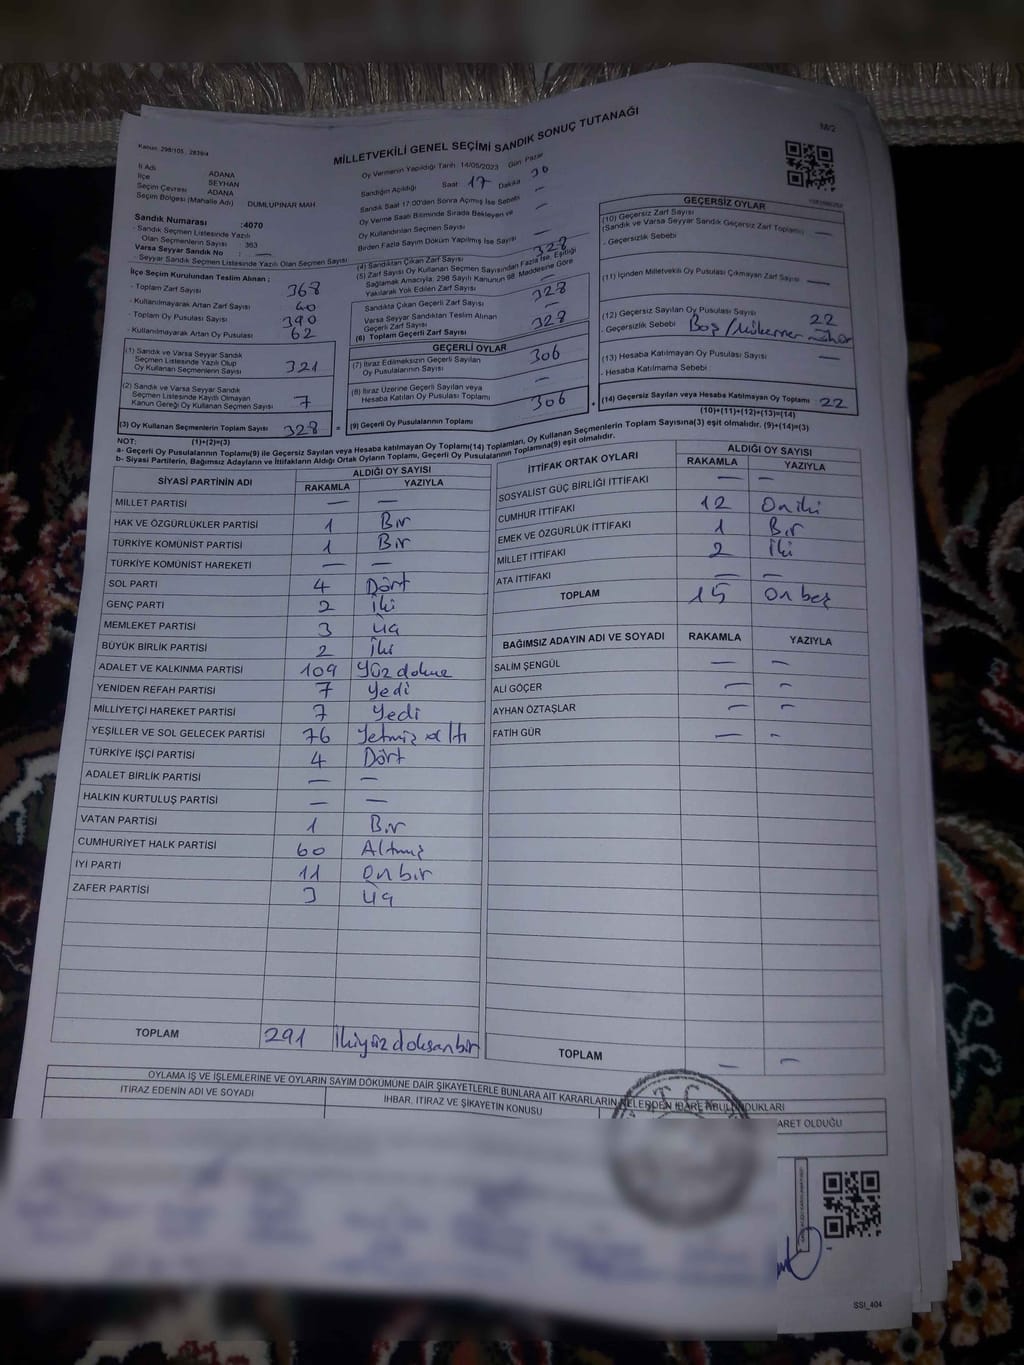 Kanun: 298/105, 2839/4
MİLLETVEKİLİ GENEL SEÇİMİ SANDIK SONUÇ TUTANAĞI
M/2
İl Adı ADANA
İlçe SEYHAN
Seçim Çevresi ADANA
Seçim Bölgesi (Mahalle Adı) DUMLUPINAR MAH.
Sandık Numarası :4070
- Sandık Seçmen Listesinde Yazılı
Olan Seçmenlerin Sayısı : 363
Varsa Seyyar Sandık No : —
- Seyyar Sandık Seçmen Listesinde Yazılı Olan Seçmen Sayısı
İlçe Seçim Kurulundan Teslim Alınan ;
- Toplam Zarf Sayısı 368
- Kullanılmayarak Artan Zarf Sayısı 40
- Toplam Oy Pusulası Sayısı 390
- Kullanılmayarak Artan Oy Pusulası 62
(1) Sandık ve Varsa Seyyar Sandık
Seçmen Listesinde Yazılı Olup
Oy Kullanan Seçmenlerin Sayısı 321
(2) Sandık ve Varsa Seyyar Sandık
Seçmen Listesinde Kayıtlı Olmayan
Kanun Gereği Oy Kullanan Seçmen Sayısı 7
(3) Oy Kullanan Seçmenlerin Toplam Sayısı 328 =
(1)+(2)=(3)
Oy Vermenin Yapıldığı Tarih: 14/05/2023 Gün: Pazar
Sandığın Açıldığı Saat 17 Dakika 30
Sandık Saat 17.00'den Sonra Açılmış İse Sebebi —
Oy Verme Saati Bitiminde Sırada Bekleyen ve
Oy Kullandırılan Seçmen Sayısı —
Birden Fazla Sayım Döküm Yapılmış İse Sayısı —
(4) Sandıktan Çıkan Zarf Sayısı 328
(5) Zarf Sayısı Oy Kullanan Seçmen Sayısından Fazla İse, Eşitliği
Sağlamak Amacıyla; 298 Sayılı Kanunun 98. Maddesine Göre
Yakılarak Yok Edilen Zarf Sayısı —
Sandıkta Çıkan Geçerli Zarf Sayısı 328
Varsa Seyyar Sandıktan Teslim Alınan
Geçerli Zarf Sayısı —
(6) Toplam Geçerli Zarf Sayısı 328
GEÇERLİ OYLAR
(7) İtiraz Edilmeksizin Geçerli Sayılan
Oy Pusulalarının Sayısı 306
(8) İtiraz Üzerine Geçerli Sayılan veya
Hesaba Katılan Oy Pusulası Toplamı —
(9) Geçerli Oy Pusulalarının Toplamı 306 +
GEÇERSİZ OYLAR
(10) Geçersiz Zarf Sayısı
(Sandık ve Varsa Seyyar Sandık Geçersiz Zarf Toplamı) —
- Geçersizlik Sebebi
(11) İçinden Milletvekili Oy Pusulası Çıkmayan Zarf Sayısı —
(12) Geçersiz Sayılan Oy Pusulası Sayısı 22
- Geçersizlik Sebebi Boş/Mükerrer mühür
(13) Hesaba Katılmayan Oy Pusulası Sayısı —
- Hesaba Katılmama Sebebi
(14) Geçersiz Sayılan veya Hesaba Katılmayan Oy Toplamı 22
(10)+(11)+(12)+(13)=(14)
NOT:
a- Geçerli Oy Pusulalarının Toplamı(9) ile Geçersiz Sayılan veya Hesaba katılmayan Oy Toplamı(14) Toplamları, Oy Kullanan Seçmenlerin Toplam Sayısına(3) eşit olmalıdır. (9)+(14)=(3)
b- Siyasi Partilerin, Bağımsız Adayların ve İttifakların Aldığı Ortak Oyların Toplamı, Geçerli Oy Pusulalarının Toplamına(9) eşit olmalıdır.
SİYASİ PARTİNİN ADI ALDIĞI OY SAYISI
RAKAMLA YAZIYLA
MİLLET PARTİSİ — —
HAK VE ÖZGÜRLÜKLER PARTİSİ 1 Bir
TÜRKİYE KOMÜNİST PARTİSİ 1 Bir
TÜRKİYE KOMÜNİST HAREKETİ — —
SOL PARTİ 4 Dört
GENÇ PARTİ 2 İki
MEMLEKET PARTİSİ 3 Üç
BÜYÜK BİRLİK PARTİSİ 2 İki
ADALET VE KALKINMA PARTİSİ 109 Yüz dokuz
YENİDEN REFAH PARTİSİ 7 Yedi
MİLLİYETÇİ HAREKET PARTİSİ 7 Yedi
YEŞİLLER VE SOL GELECEK PARTİSİ 76 Yetmiş altı
TÜRKİYE İŞÇİ PARTİSİ 4 Dört
ADALET BİRLİK PARTİSİ — —
HALKIN KURTULUŞ PARTİSİ — —
VATAN PARTİSİ 1 Bir
CUMHURİYET HALK PARTİSİ 60 Altmış
İYİ PARTİ 11 On bir
ZAFER PARTİSİ 3 Üç
TOPLAM 291 İkiyüz doksan bir
İTTİFAK ORTAK OYLARI ALDIĞI OY SAYISI
RAKAMLA YAZIYLA
SOSYALİST GÜÇ BİRLİĞİ İTTİFAKI — —
CUMHUR İTTİFAKI 12 On iki
EMEK VE ÖZGÜRLÜK İTTİFAKI 1 Bir
MİLLET İTTİFAKI 2 İki
ATA İTTİFAKI — —
TOPLAM 15 On beş
BAĞIMSIZ ADAYIN ADI VE SOYADI RAKAMLA YAZIYLA
SALİM ŞENGÜL — —
ALİ GÖÇER — —
AYHAN ÖZTAŞLAR — —
FATİH GÜR — -
TOPLAM — —
OYLAMA İŞ VE İŞLEMLERİNE VE OYLARIN SAYIM DÖKÜMÜNE DAİR ŞİKAYETLERLE BUNLARA AİT KARARLARIN NELERDEN İBARET BULUNDUKLARI
İTİRAZ EDENİN ADI VE SOYADI
İHBAR, İTİRAZ VE ŞİKAYETİN KONUSU
ARET OLDUĞU
T.C.
SSI_404